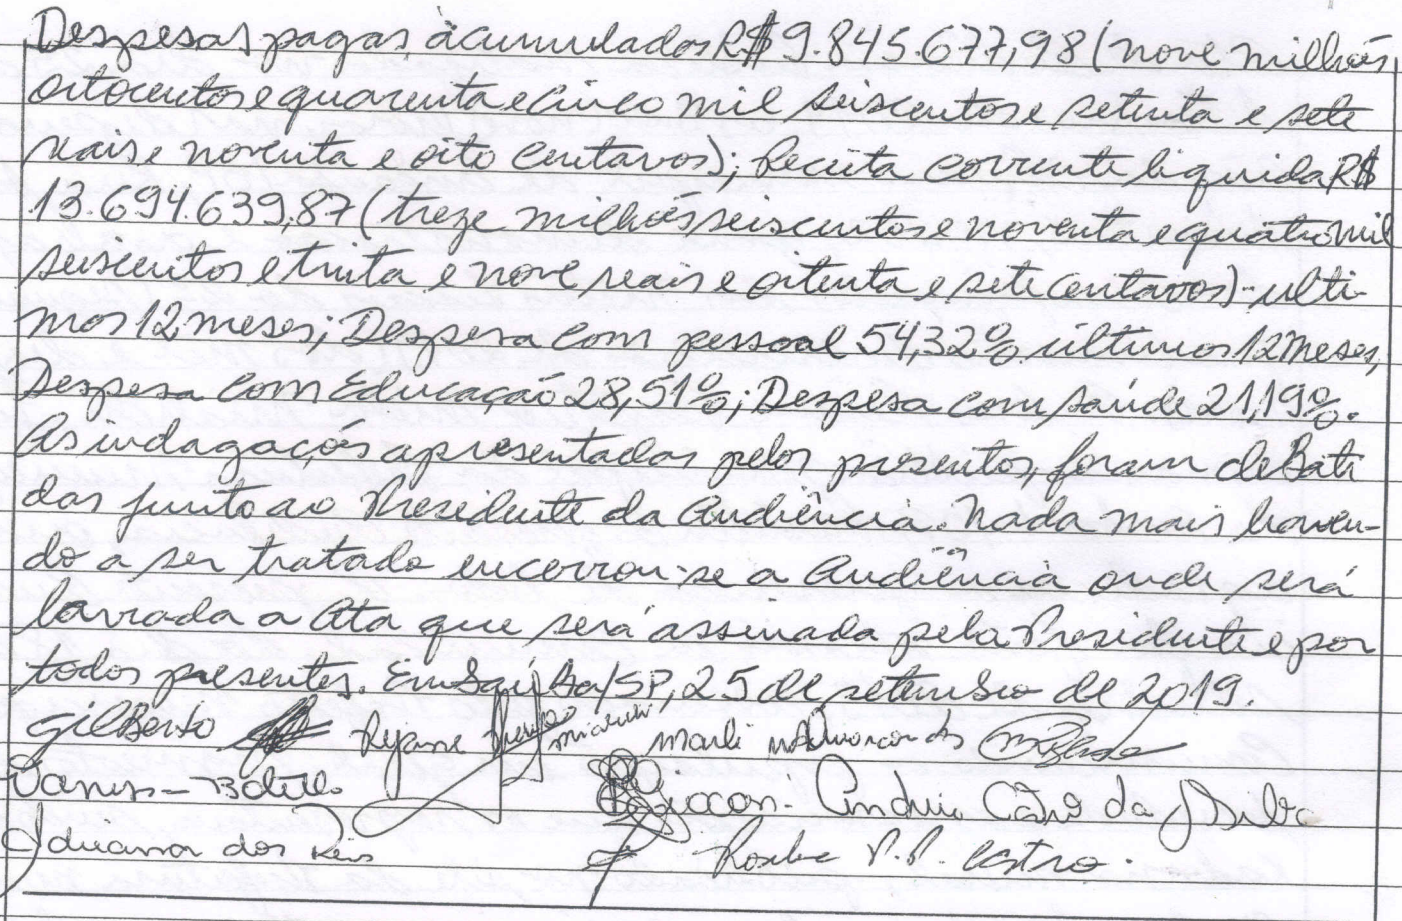 Despesas pagas acumulados R$ 9.845.677,98 (nove milhões
oitocentos e quarenta e cinco mil seiscentos e setenta e sete
reais e noventa e oito centavos); Receita corrente liquida R$
13.694.639,87 (treze milhões seiscentos e noventa e quatro mil
seiscentos e trinta e nove reais e oitenta e sete centavos) - ulti-
mos 12 meses; Despesa com pessoal 54,32% últimos 12 meses,
Despesa com Educação 28,51%; Despesa com saúde 21,19%.
As indagações apresentadas pelos presentes, foram debati
das junto ao Presidente da Audiência. Nada mais haven-
do a ser tratado encerrou-se a Audiência onde será
lavrada a Ata que será assinada pela Presidente e por
todos presentes. Em /SP, 25 de setembro de 2019.
Gilberto Rejane Marli
da Silva
dos Reis P. P. Castro.